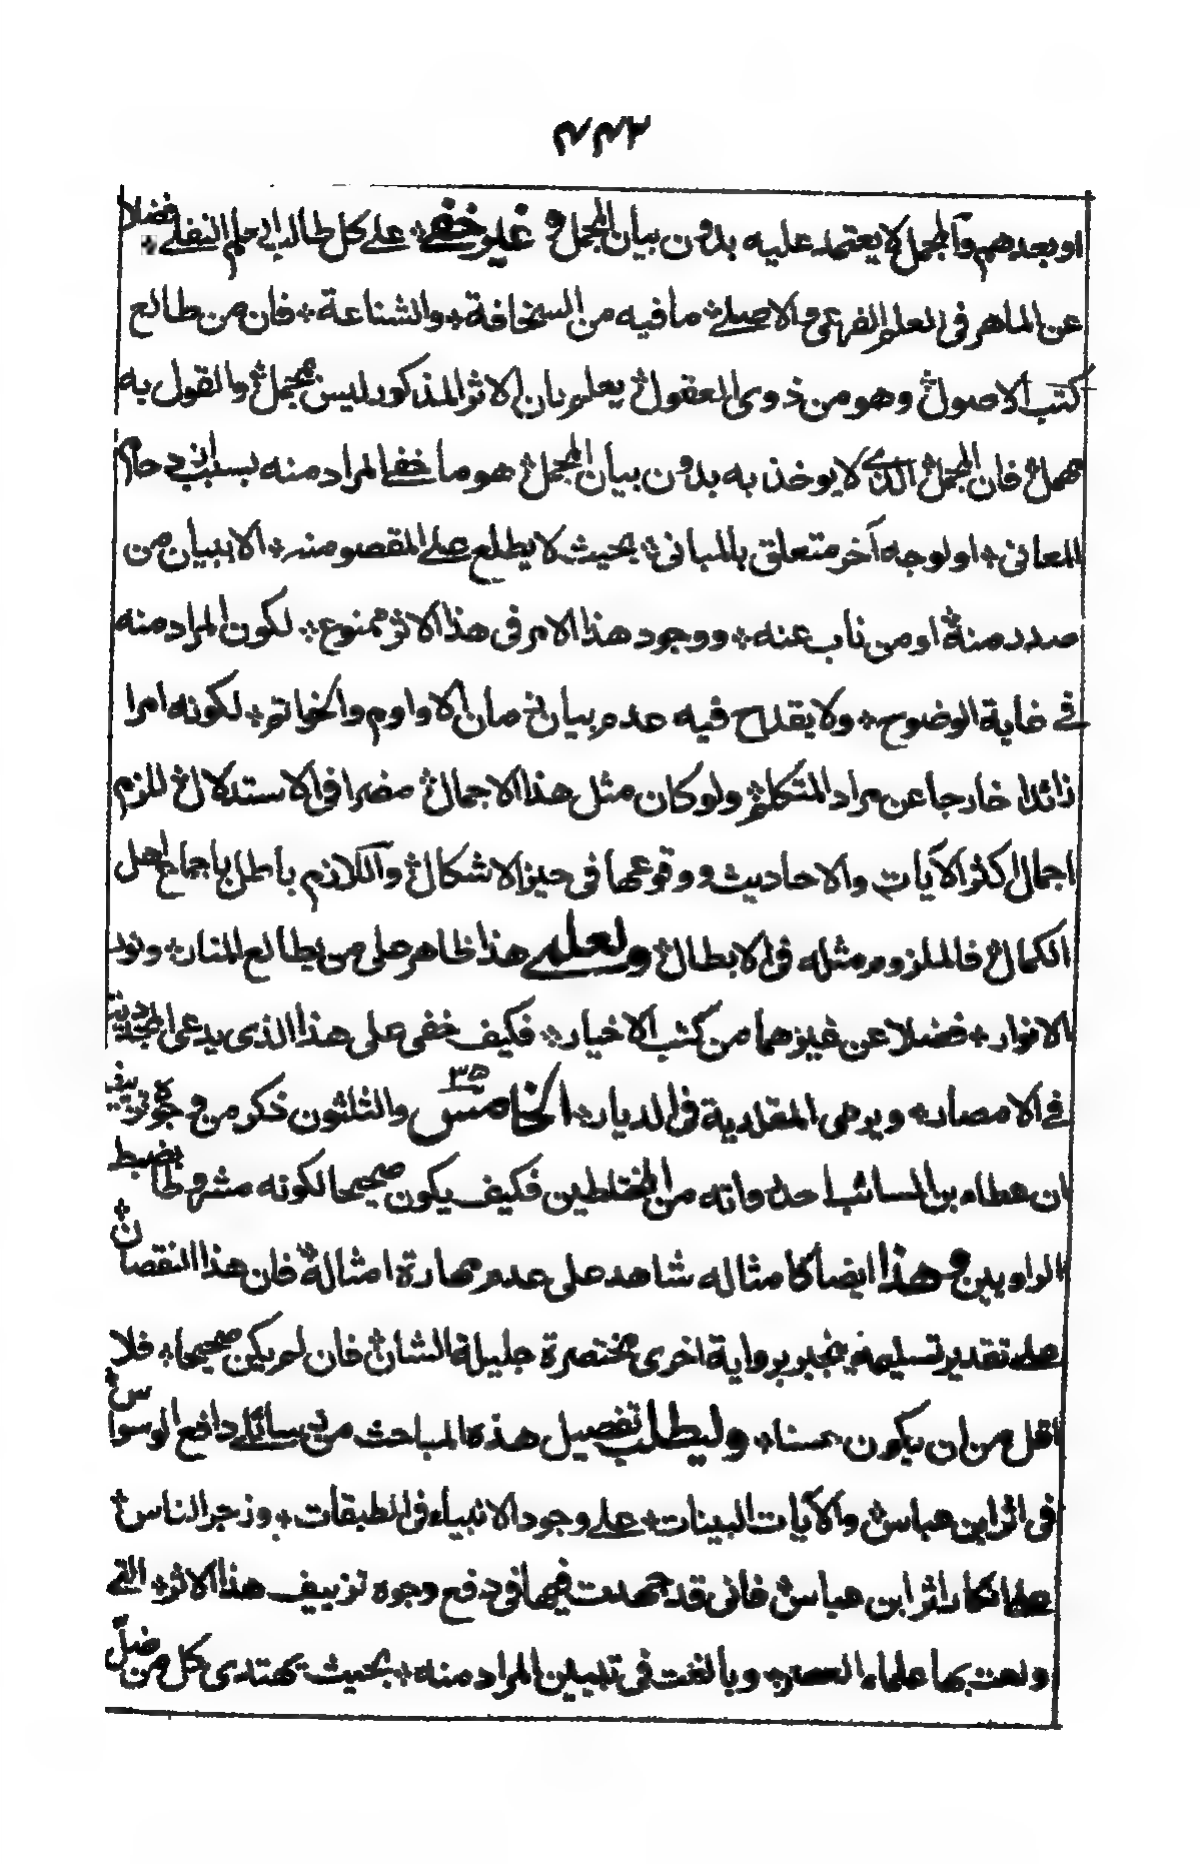 ٢٤٢
او بعدهم والمجمل لا يعتمد عليه بدون بيان المجمل وغير خفي على كل طالب العلم النقلي فضلا
عن الماهر في العلم الفرعي والاصلي ما فيه من السخافة والشناعة فان من طالع
كتب الاصول وهو من ذوي العقول يعلم بان الاثر المذكور ليس بمجمل والقول به
مهمل فان المجمل الذي لا يوخذ به بدون بيان المجمل هو ما خفي المراد منه بسبب ازدحام
المعاني او لوجه آخر متعلق بالمباني بحيث لا يطلع على المقصود منه الا ببيان من
صدر منه او من ناب عنه ووجود هذا الامر في هذا الاثر ممنوع لكون المراد منه
في غاية الوضوح ولا يقدح فيه عدم بيان زمان الاوادم والخواتم لكونه امرا
زائدا خارجا عن مراد المتكلم ولو كان مثل هذا الاجمال مضرا في الاستدلال للزم
اجمال اكثر الآيات والاحاديث ووقوعها في حيز الاشكال واللازم باطل باجماع اهل
الكمال فالملزوم مثله في الابطال ولعلمي هذا ظاهر على من يطالع المنار ونور
الانوار فضلا عن غيرهما من كتب الاخيار فكيف خفي على هذا الذي يدعي المجددية
في الامصار ويرمى المقلدية في الديار الخامس ٣٥ والثلثون ذكر من وجوه تزييف
ان عطاء بن السائب احد رواته من المختلطين فكيف يكون صحيحا لكونه مشروطا بضبط
الراويين وهذا ايضا كامثاله شاهد على عدم مهارة امثاله فان هذا النقصان
على تقدير تسليمه ينجبر برواية اخرى مختصرة جليلة الشان فان لم يكن صحيحا فلا
اقل من ان يكون حسنا وليطلب تفصيل هذه المباحث من رسائلي دافع الوسواس
في اثر ابن عباس والآيات البينات على وجود الانبياء في الطبقات وزجر الناس
على انكار اثر ابن عباس فاني قد جهدت فيها في دفع وجوه تزييف هذا الاثر التي
ولعت بها علماء العصر وبالغت في تبيين المراد منه بحيث يهتدى كل من ضل